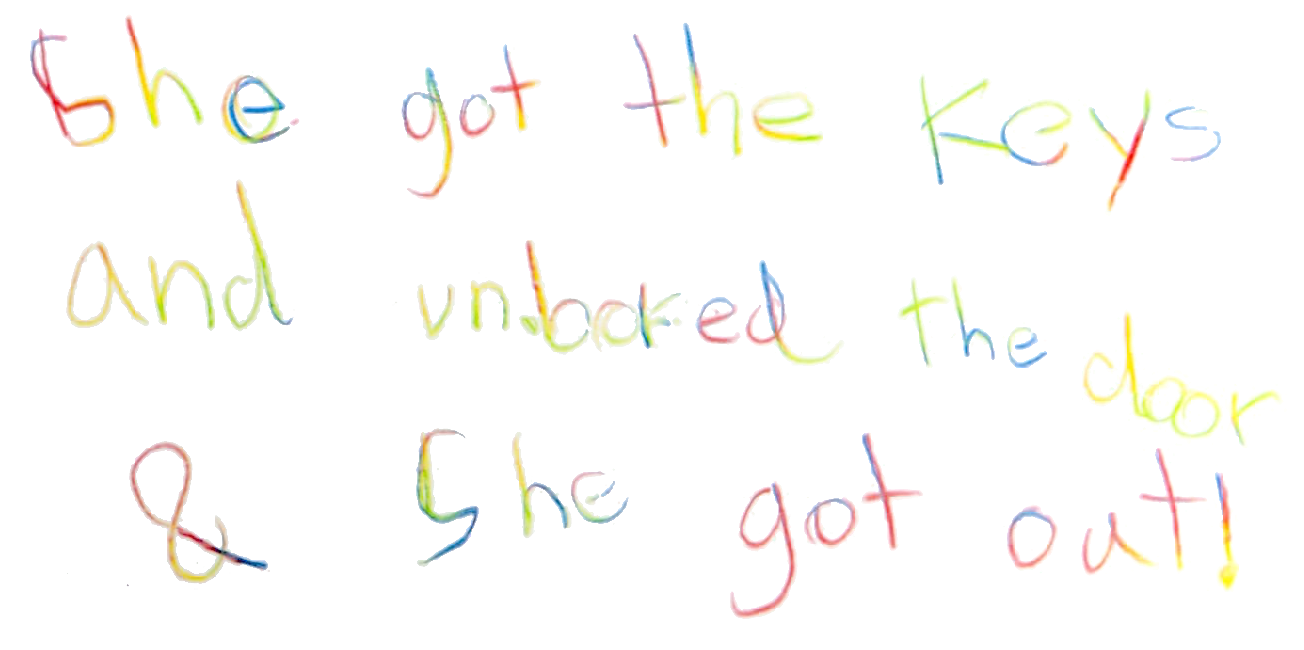 She got the keys
and unlocked the door
& She got out!